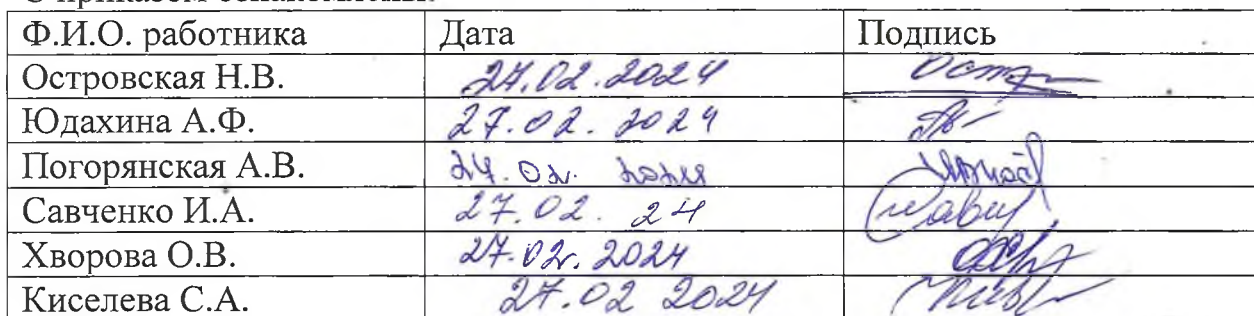 Ф.И.О. работника Дата Подпись
Островская Н.В. 27.02.2024
Юдахина А.Ф. 27.02.2024
Погорянская А.В. 27.02. 2024
Савченко И.А. 27.02. 24
Хворова О.В. 27.02. 2024
Киселева С.А. 27.02 2024